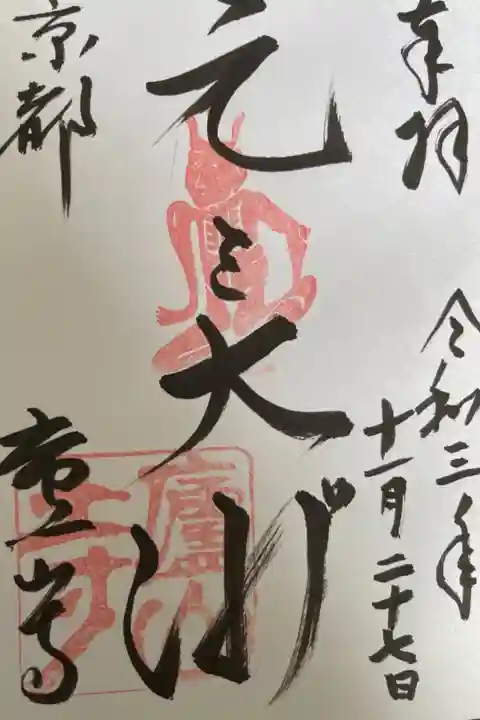 奉拝
令和三年
十一月二十七日
元三大師
京都
廬山寺